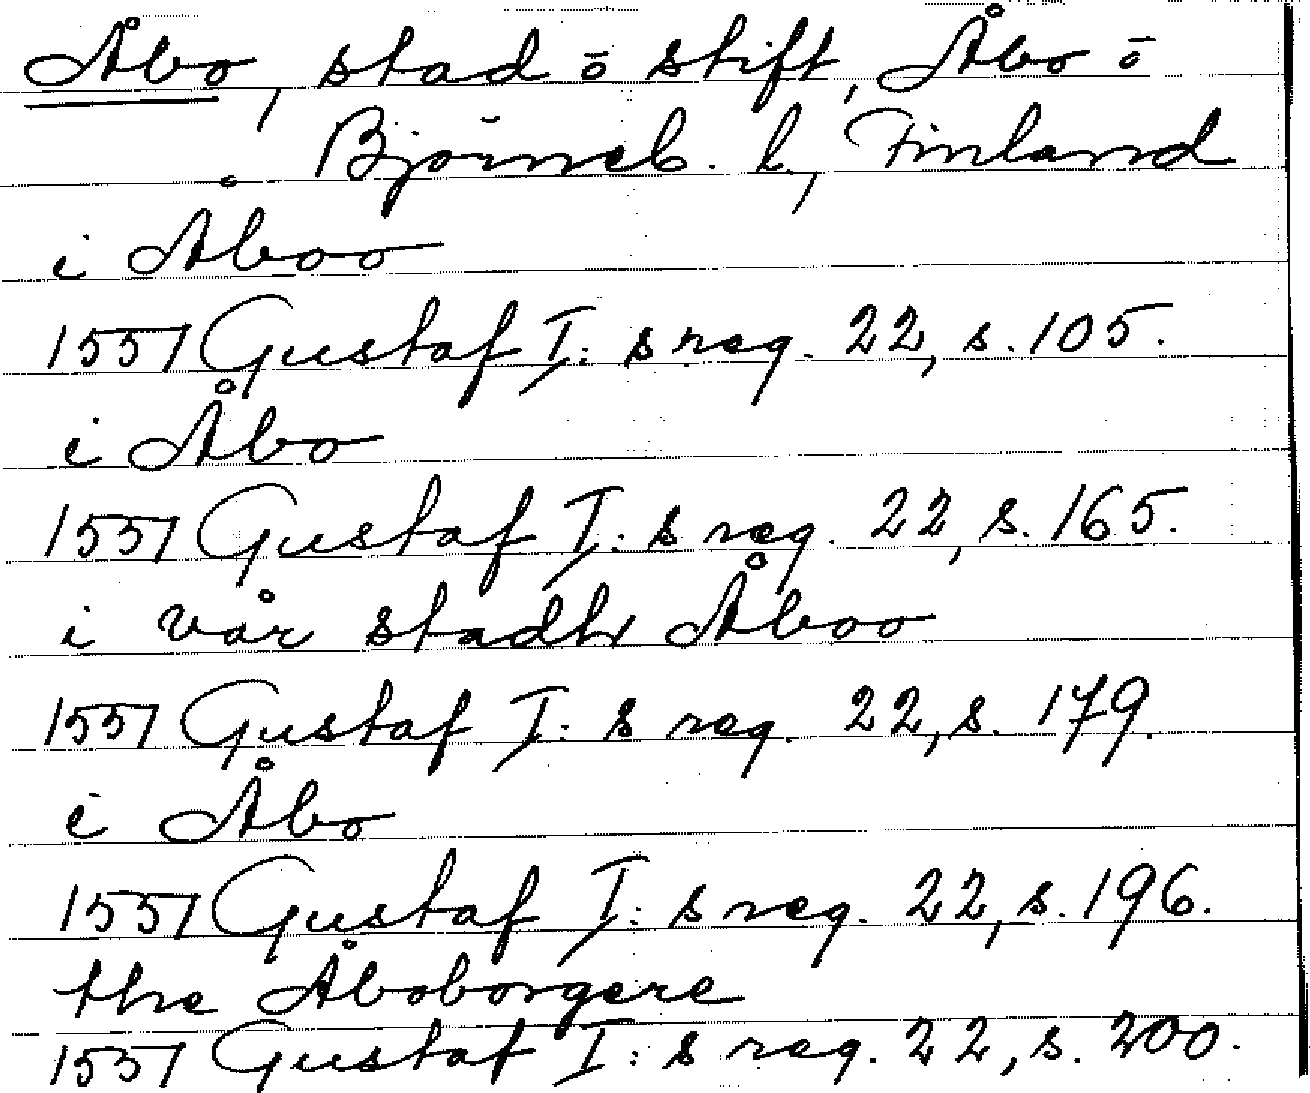 Åbo, stad ō stift, Åbo ō
Björneb. l., Finland
i Åboo
1551 Gustaf I:s reg. 22, s. 105.
i Åbo
1551 Gustaf I:s reg. 22, s. 165.
i vår stadh Åboo
1551 Gustaf I:s reg. 22, s. 179.
i Åbo
1551 Gustaf I:s reg. 22, s. 196.
the Åboborgere
1551 Gustaf I:s reg. 22, s. 200.